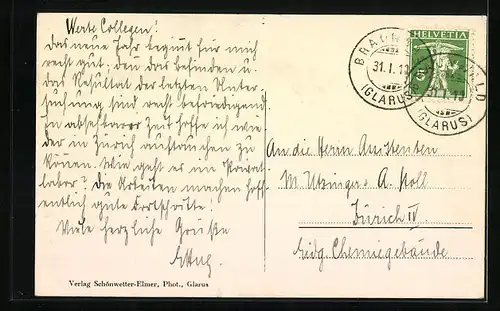 Werte Collegen!
Das neue Jahr beginnt für mich
recht gut; den das befinden u.
das Resultat der letzten Unter-
suchung sind recht befriedigend.
In absehbarer Zeit hoffe ich wie-
der in Zürich auftauchen zu
können. Wie geht es im Privat-
labor? Die Arbeiten machen hoff-
entlich gute Fortschritte!
Viele herzliche Grüße
Verlag Schönwetter-Elmer, Phot., Glarus
HELVETIA
5
BRAUNWALD
31.I.1
(GLARUS)
(GLARUS)
An die Herrn Assistenten
M. Utzinger & A. Koll
Zürich IV
Eidg. Chemiegebäude